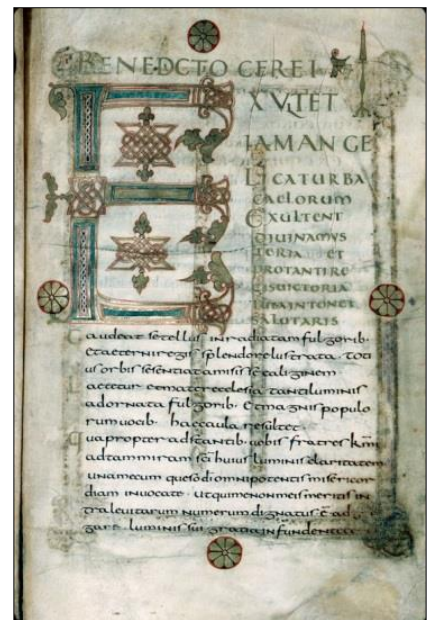 BENEDCTO CEREI
EXULTET
IAM ANGE
LICA TURBA
CAELORUM
EXULTENT
DIUINA MYS
TERIA ET
PRO TANTI RE
GIS UICTORIA
TUBA INTONET
SALUTARIS
Gaudeat se tellus inradiatam fulgorib.
Et aeterni regis splendore lustrata. toti
us orbis se sentiat amisisse caliginem.
Laetetur et mater ecclesia tanti luminis
adornata fulgorib. Et magnis populo
rum uocib. haec aula resultet.
Quapropter adstantib. uobis fratres kmi
ad tam miram sci huius luminis claritatem
una mecum queso di omnipotentis misericor
diam inuocate. Ut qui me non meis meritis in
tra leuitarum numerum dignatus e ad
gare. luminis sui gratia infundente